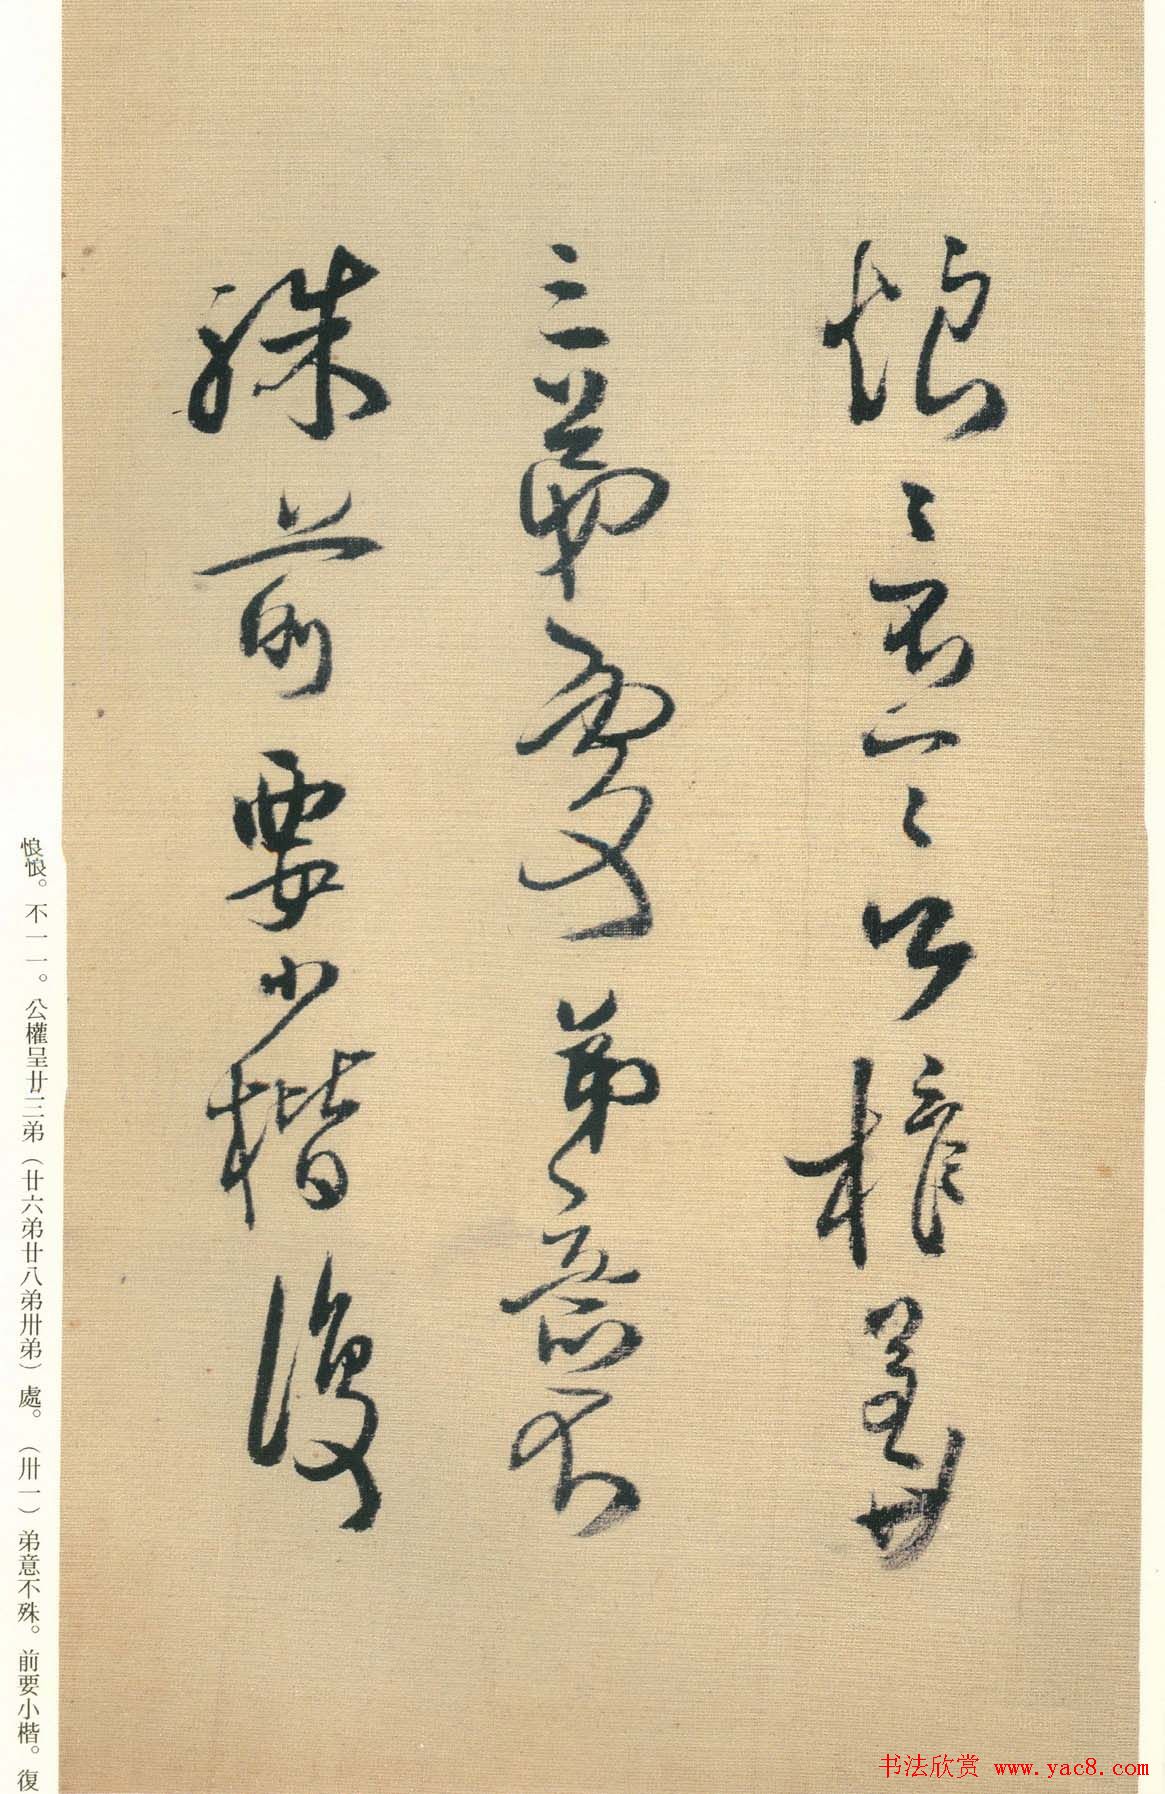 悢々不一々公權呈廿
三弟處弟意不
殊前要小楷復
悢悢。不一一。公權呈廿三弟（廿六弟廿八弟卅弟）處。（卅一）弟意不殊。前要小楷。復
书法欣赏 www.yac8.com